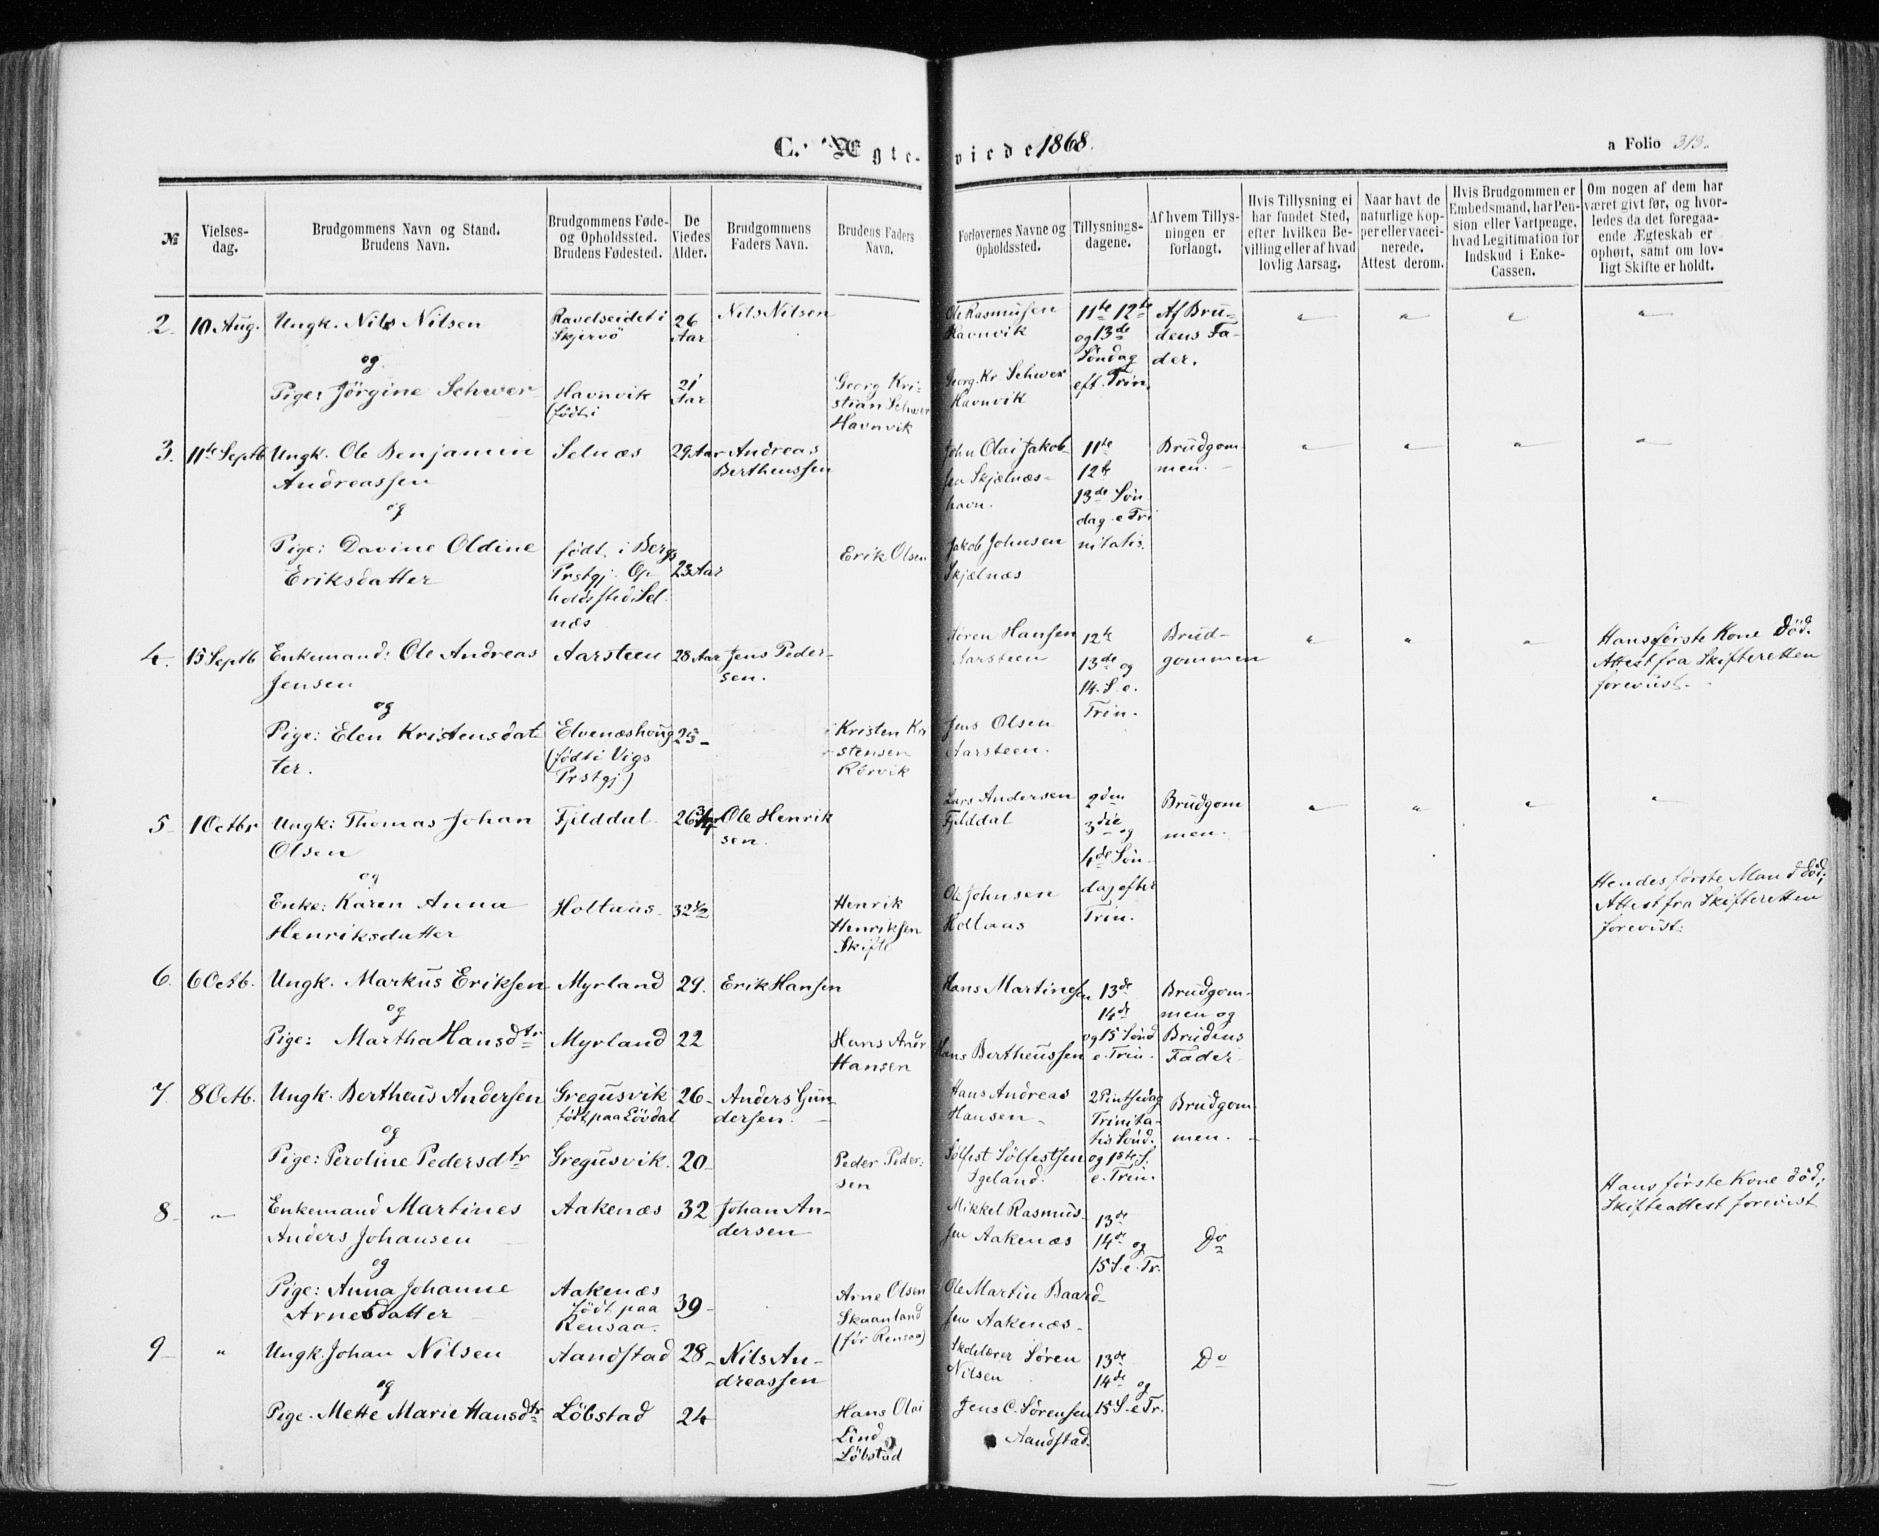 C. Ægte-viede 1868.
a Folio 313.
№
Vielses-dag.
Brudgommens Navn og Stand.
Brudens Navn.
Brudgommens Føde- og Opholdssted.
Brudens Fødested.
De Viedes Alder.
Brudgommens Faders Navn.
Brudens Faders Navn.
Forlovernes Navne og Opholdssted.
Tillysnings-dagene.
Af hvem Tillysningen er forlangt.
Hvis Tillysning ei har fundet Sted, efter hvilken Bevilling eller af hvad lovlig Aarsag.
Naar havt de naturlige Kopper eller vaccinerede. Attest derom.
Hvis Brudgommen er Embedsmand, har Pension eller Vartpenge, hvad Legitimation for Indskud i Enke-Cassen.
Om nogen af dem har været givt før, og hvorledes da det foregaaende Ægteskab er ophørt, samt om lovligt Skifte er holdt.
2. 10 Aug. Ungk. Nils Nilsen
Ravelseidet i Skjervö
26 Aar
Nils Nilsen
Ole Rasmusen Havnvik
11te 12te og 13de Söndag eft. Trin.
Af Brudens Fader.
" " " "
og
Pige: Jörgine Schwer
Havnvik (födt i
21 Aar
Georg Kristian Schwer Havnvik
Georg Kr. Schwer Havnvik
3. 11te Septb Ungk. Ole Benjamin Andreassen
Selnæs
29 Aar
Andreas Bertheussen
John Olai Jakobsen Skjælnæshavn.
11te 12te 13de Söndag e Trinitatis.
Brudgommen.
" " " "
og
Pige: Davine Oldine Eriksdatter
födt i Bergs Prstgj. Opholdssted Selnæs
23 Aar
Erik Olsen
Jakob Johnsen Skjælnæs
4. 15 Septb Enkemand: Ole Andreas Jensen
Aarsteen
28 Aar
Jens Pedersen.
Sören Hansen Aarsteen
12te 13de og 14. S. e. Trin.
Brudgommen
" " "
Hans förste Kone död. Attest fra Skifteretten forevist.
og
Pige: Elen Kristensdatter.
Elvenæshoug (födt i Vigs Prstgj.)
25
Kristen Kristensen Rörvik
Jens Olsen Aarsteen.
5. 1 Octbr Ungk: Thomas Johan Olsen
Fjelddal.
26 3/4
Ole Henriksen.
Lars Andersen Fjelddal
2den 3die og 4de Söndag efter Trin.
Brudgommen.
" " " "
og
Enke: Karen Anna Henriksdatter
Holtaas.
32 1/2
Henrik Henriksen Skifte
Ole Johnsen Holtaas
Hendes förste Mand död; Attest fra Skifteretten forevist:
6. 6 Octb. Ungk. Markus Eriksen
Myrland
29.
Erik Hansen
Hans Martinesen
13de 14de og 15 Sönd e. Trin.
Brudgommen og Brudens Fader
og
Pige: Martha Hansdtr
Myrland
22
Hans Hansen
Hans Bertheussen
7. 8 Octb. Ungk. Bertheus Andersen
Gregusvik födt paa Lövdal
26
Anders Gundersen.
Hans Andreas Hansen
2 Pintsedag Trinitatis Sönd. og 1ste S. e. Trin.
Brudgommen.
og
Pige: Peroline Pedersdtr
Gregusvik.
20
Peder Pedersen
Sölfest Sölfestsen Igeland.
8 " Enkemand Martines Anders Johansen
Aakenæs
32
Johan Andersen
Mikkel Rasmussen Aakenæs
13de 14de og 15 S. e. Tr.
Do
Hans förste Kone död; Skifteattest forevist
og
Pige: Anna Johanne Arnesdatter
Aakenæs födt paa Rensaa.
39
Arne Olsen Skaanland (för Rensaa)
Ole Martin Baardsen Aakenæs
9 " Ungk. Johan Nilsen
Aandstad
28
Nils Andreassen
Skolelærer Sören Nilsen
13de 14de og 15 S. e Tr.
Do
og
Pige. Mette Marie Hansdtr
Löbstad
24
Hans Olai Lind Löbstad
Jens C. Sörensen Aandstad.